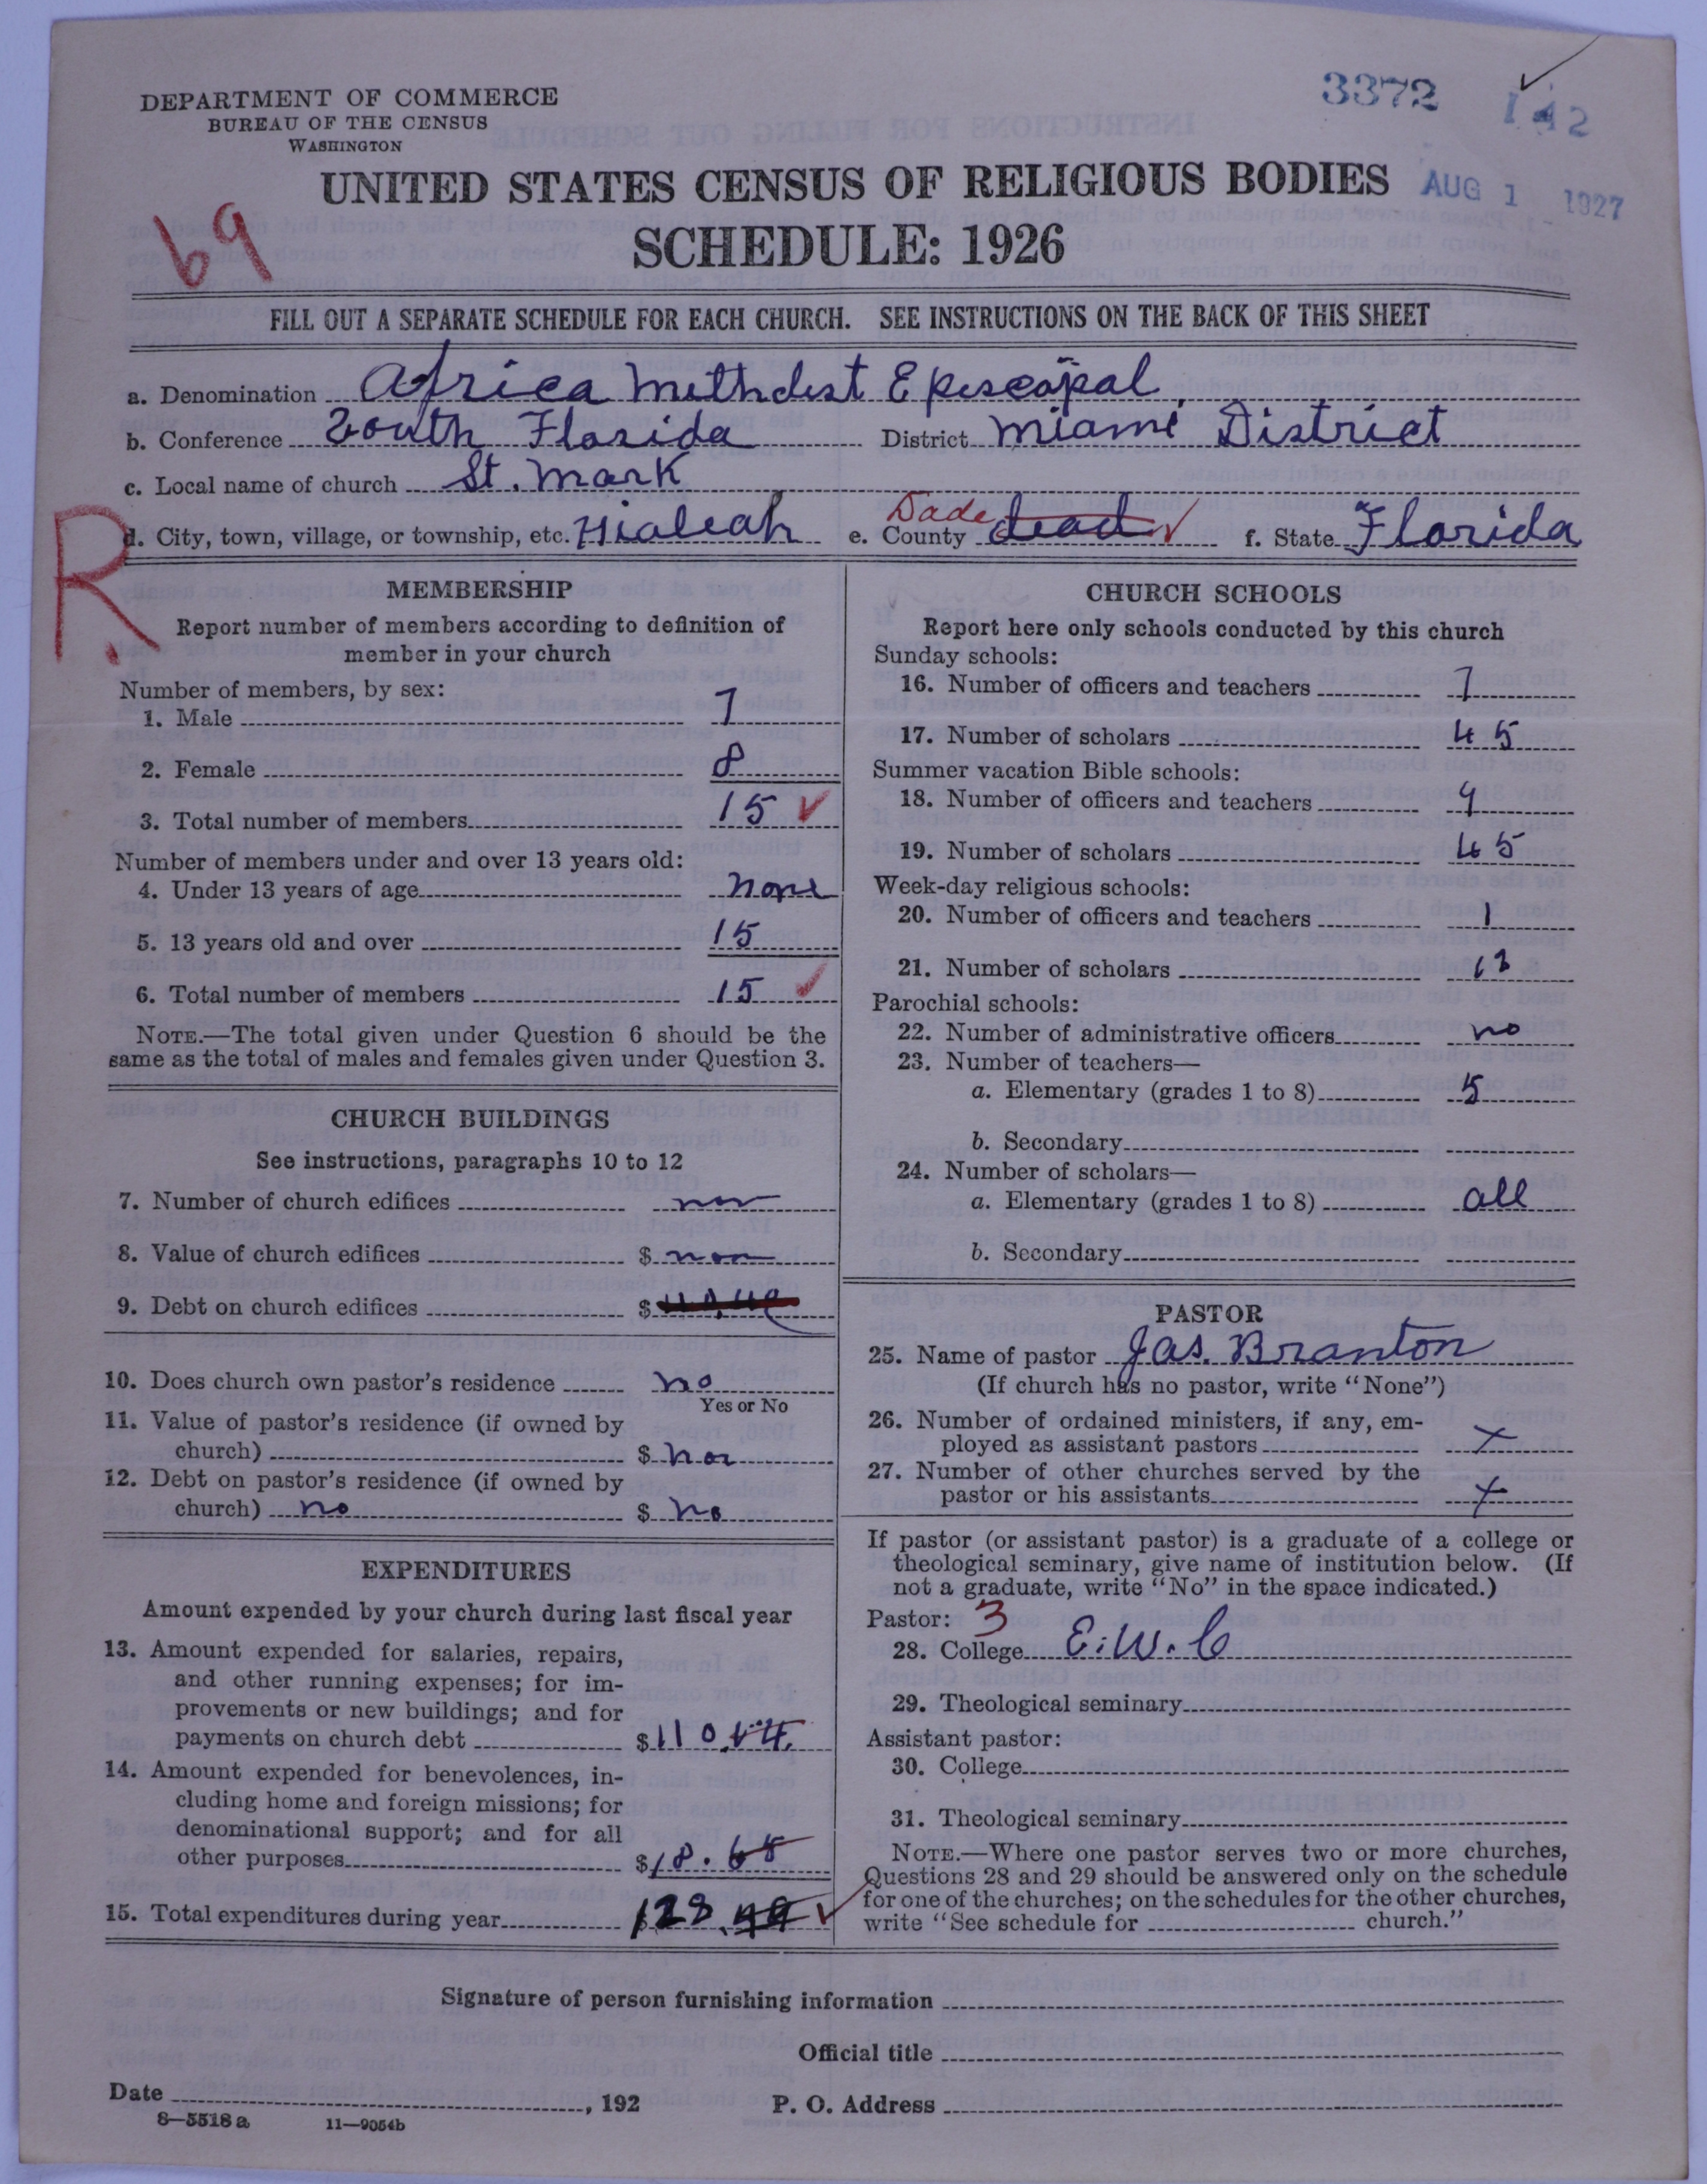 DEPARTMENT OF COMMERCE
BUREAU OF THE CENSUS
WASHINGTON
3372 142
AUG 1 1927
UNITED STATES CENSUS OF RELIGIOUS BODIES
SCHEDULE: 1926
69
FILL OUT A SEPARATE SCHEDULE FOR EACH CHURCH. SEE INSTRUCTIONS ON THE BACK OF THIS SHEET
a. Denomination Africa Methdist Episcopal
b. Conference South Florida District Miami District
c. Local name of church St. Mark
R.
d. City, town, village, or township, etc. Hialeah e. County Dade dead f. State Florida
MEMBERSHIP
Report number of members according to definition of
member in your church
Number of members, by sex:
1. Male 7
2. Female 8
3. Total number of members 15
Number of members under and over 13 years old:
4. Under 13 years of age none
5. 13 years old and over 15
6. Total number of members 15
NOTE.—The total given under Question 6 should be the
same as the total of males and females given under Question 3.
CHURCH BUILDINGS
See instructions, paragraphs 10 to 12
7. Number of church edifices non
8. Value of church edifices $ non
9. Debt on church edifices $
10. Does church own pastor's residence no
Yes or No
11. Value of pastor's residence (if owned by
church) $ non
12. Debt on pastor's residence (if owned by
church) no $ no
EXPENDITURES
Amount expended by your church during last fiscal year
13. Amount expended for salaries, repairs,
and other running expenses; for im-
provements or new buildings; and for
payments on church debt $110
14. Amount expended for benevolences, in-
cluding home and foreign missions; for
denominational support; and for all
other purposes $18.68
15. Total expenditures during year 128
CHURCH SCHOOLS
Report here only schools conducted by this church
Sunday schools:
16. Number of officers and teachers 7
17. Number of scholars 45
Summer vacation Bible schools:
18. Number of officers and teachers 9
19. Number of scholars 45
Week-day religious schools:
20. Number of officers and teachers 1
21. Number of scholars
Parochial schools:
22. Number of administrative officers no
23. Number of teachers—
a. Elementary (grades 1 to 8) 5
b. Secondary
24. Number of scholars—
a. Elementary (grades 1 to 8) all
b. Secondary
PASTOR
25. Name of pastor Jas. Branton
(If church has no pastor, write "None")
26. Number of ordained ministers, if any, em-
ployed as assistant pastors x
27. Number of other churches served by the
pastor or his assistants x
If pastor (or assistant pastor) is a graduate of a college or
theological seminary, give name of institution below. (If
not a graduate, write "No" in the space indicated.)
Pastor: 3
28. College E.W.C
29. Theological seminary
Assistant pastor:
30. College
31. Theological seminary
NOTE.—Where one pastor serves two or more churches,
Questions 28 and 29 should be answered only on the schedule
for one of the churches; on the schedules for the other churches,
write "See schedule for church."
Signature of person furnishing information
Official title
Date , 192 P. O. Address
8—5518 a 11—9054b